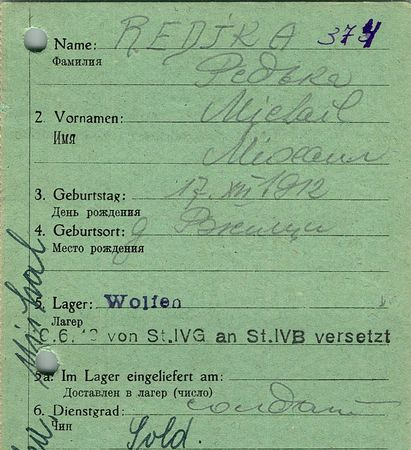 Name: REDIKA 374
Фамилия Редька
2. Vornamen: Michail
Имя Михаил
3. Geburtstag: 17. XII 1912
День рождения
4. Geburtsort: д
Место рождения
5. Lager: Wolfen
Лагер
von St.IVG an St.IVB versetzt
5a. Im Lager eingeliefert am:
Доставлен в лагер (число)
6. Dienstgrad: солдат
Чин Sold.